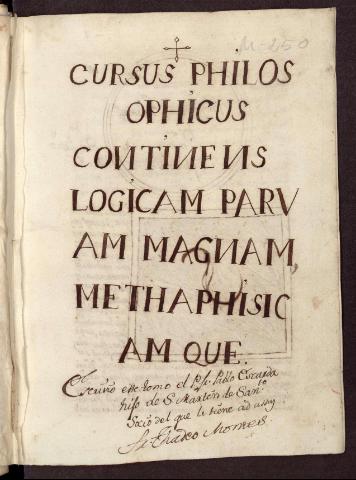 M-250
CURSUS PHILOS
OPHICUS
CONTINENS
LOGICAM PARV
AM MAGNAM,
METHAPHISIC
AM QUE.
Escrivio este tomo el Pablo
hijo de S. Martin de San.to
Socio del que le tiene ad usum
Fr.